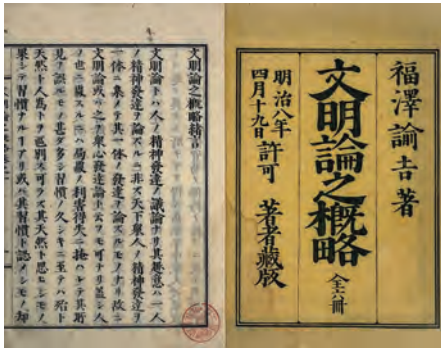 福澤諭吉著
文明論之概略 全六冊
明治八年
四月十九日許可 著者藏版
文明論之概略緒言
文明論トハ人ノ精神發達ノ議論ナリ其趣意ハ一人
ノ精神發達ヲ論スルニ非ス天下衆人ノ精神發達ヲ
一体ニ集メテ其一体ノ發達ヲ論スルモノナリ故ニ
文明論或ハ之ヲ衆心發達論ト云フモ可ナリ蓋シ人
ノ世ニ處スルニハ局處ノ利害得失ニ掩ハレテ其所
見ヲ誤ルモノ甚タ多シ習慣ノ久シキニ至テハ殆ト
天然ト人爲トヲ區別ス可ラス其天然ト思ヒシモノ
果シテ習慣ナルヿアリ或ハ其習慣ト認メシモノ却